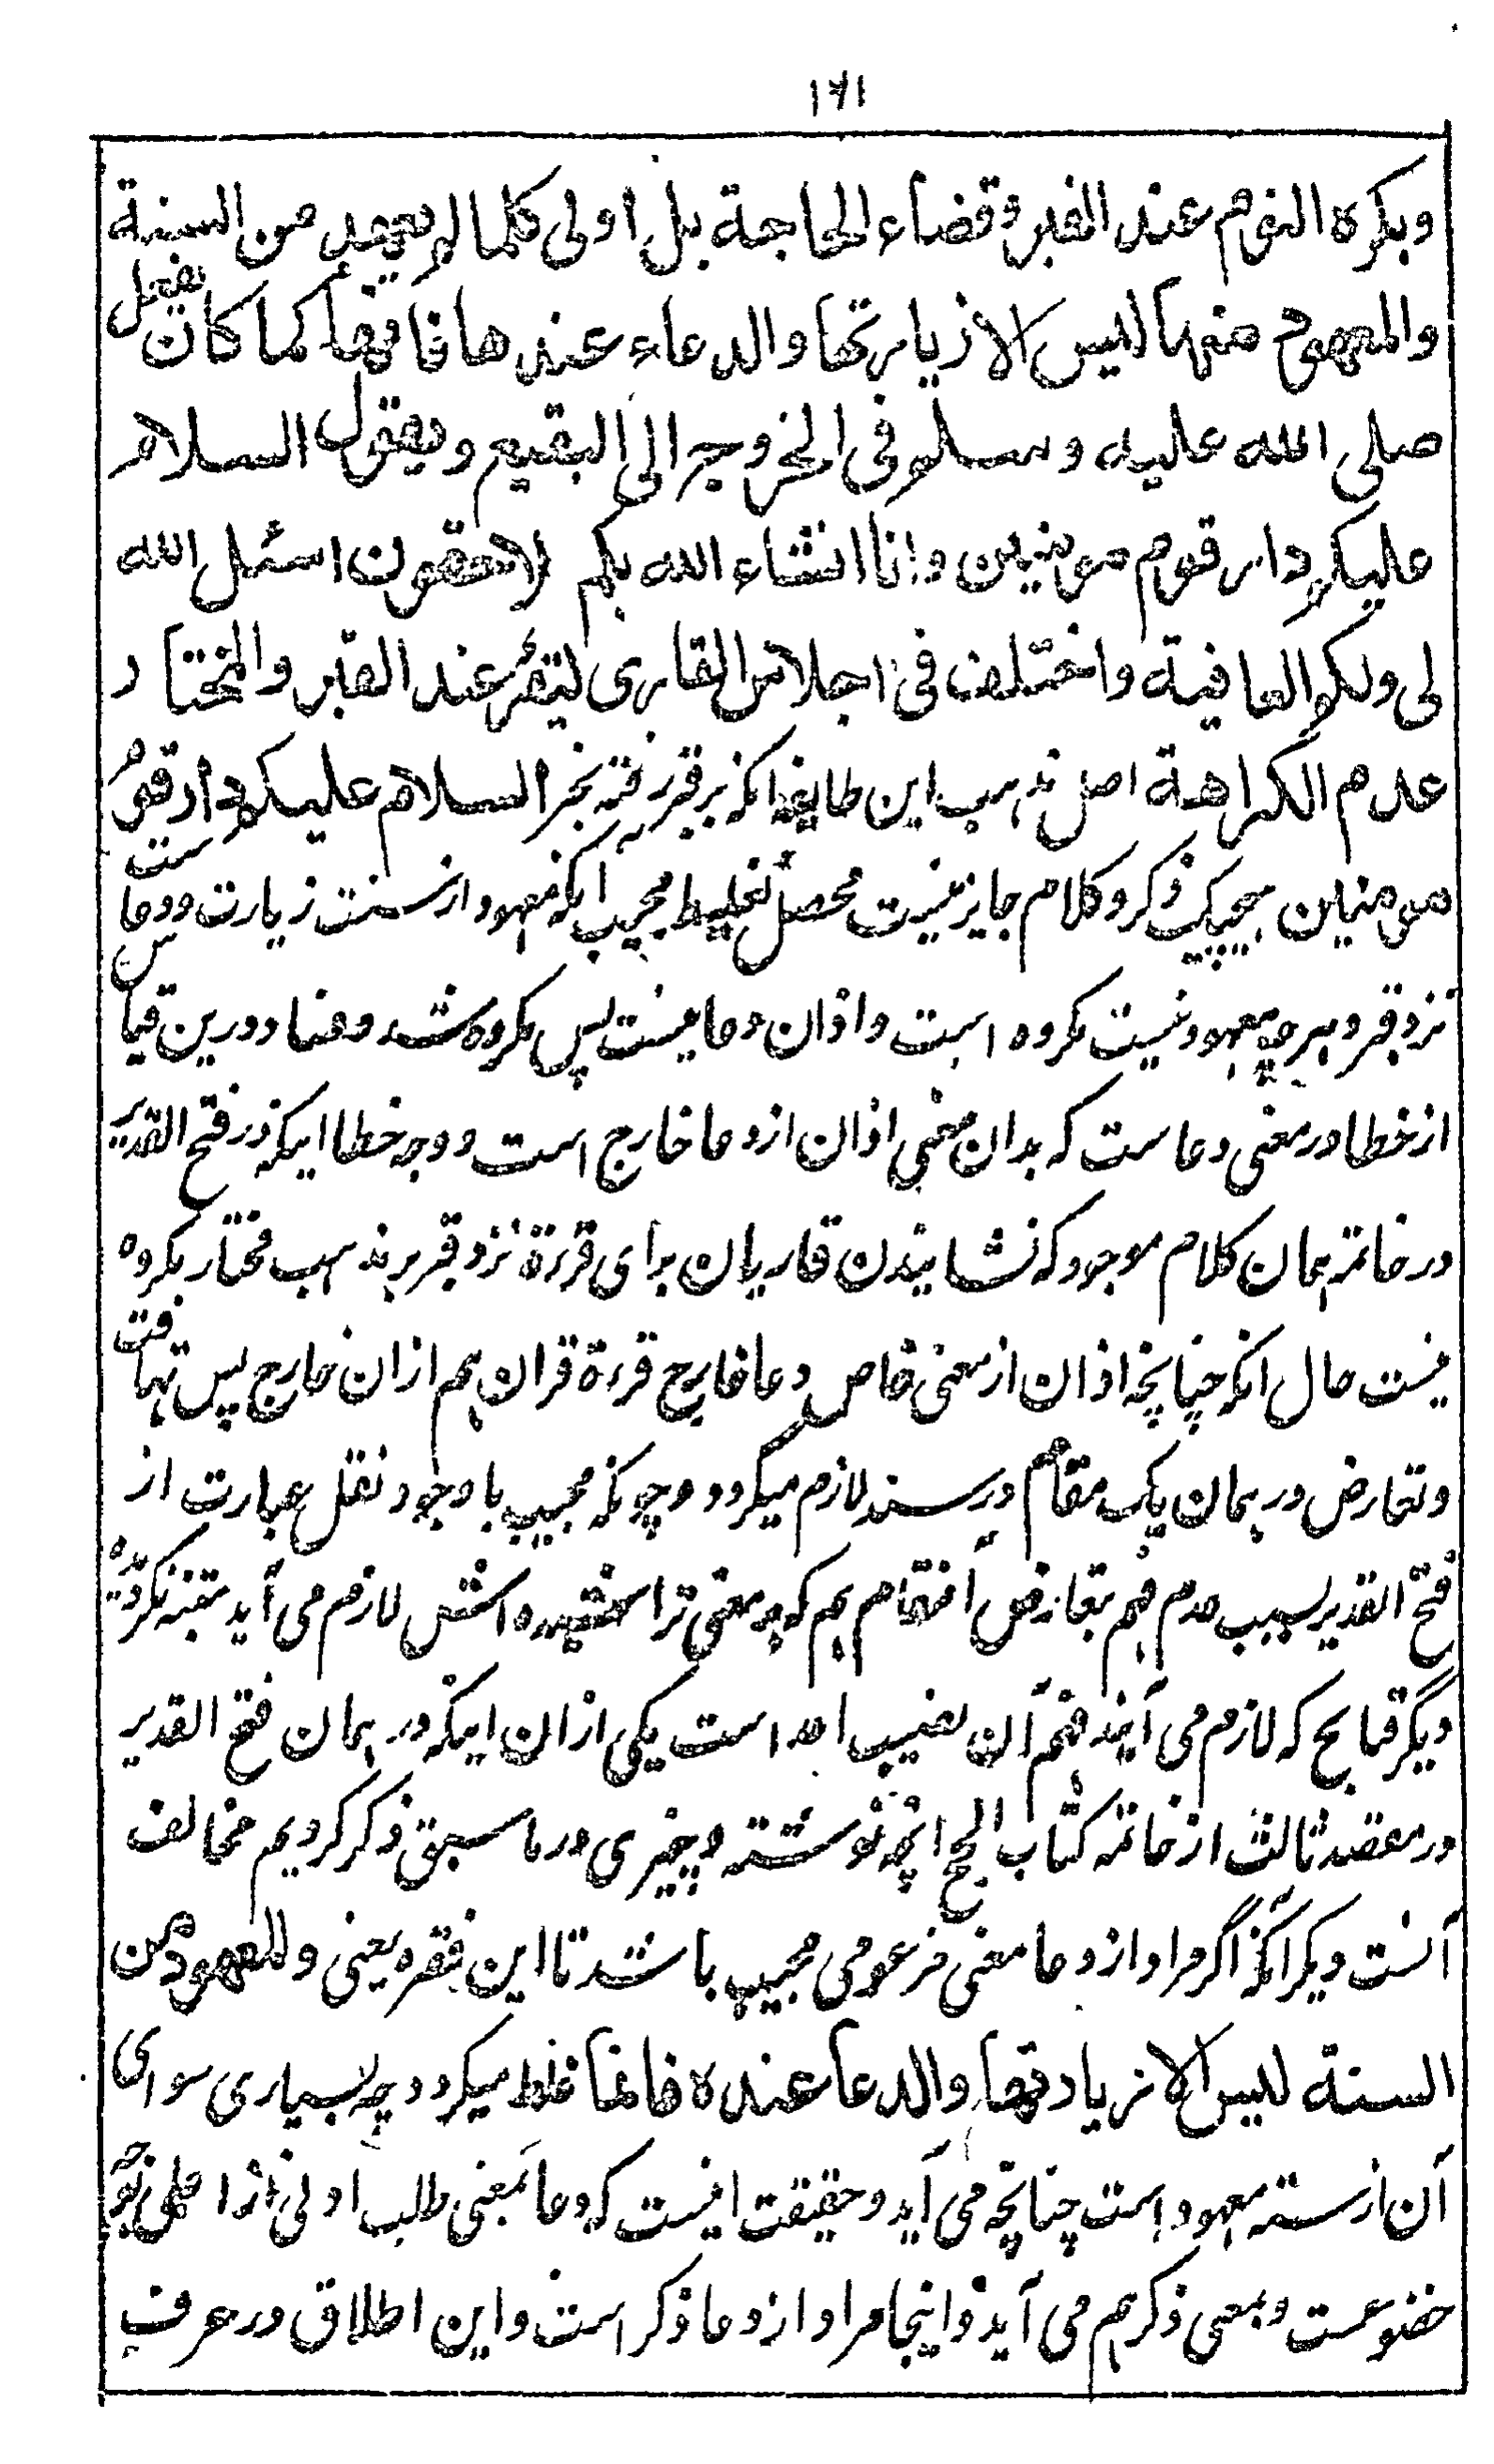 ۱۷۱
ویکره النوم عند القبر وقضاء الحاجة بل اولی کلما لم یعهد من السنة
والمعهود منها لیس الا زیارتها والدعاء عندها قائما کما کان یفعل
صلی الله علیه وسلم فی الخروج الی البقیع ویقول السلام
علیکم دار قوم مومنین وانا انشاء الله بکم لاحقون اسئل الله
لی ولکم العافیة واختلف فی اجلاس القاری لیقرء عند القبر والمختار
عدم الکراهة اصل مذہب این طایفه انکه بر قبر رفته بجز السلام علیکم دار قوم
مومنین هیچیک ذکر و کلام جایز نیست محصل تغلیط مجیب آنکه معهود از سنت زیارت و دعا ست
نزد قبر و هر چه معهود نیست مکروه است و اذان دعا نیست پس مکروه شد و فساد درین قیاس
از خطا در معنی دعاست که بدان معنی اذان از دعا خارج است و وجه خطا اینکه در فتح القدیر
در خاتمه همان کلام موجود که نشانیدن قاریان برای قرءة نزد قبر بر مذهب مختار مکروه
نیست حال انکه چنانچه اذان از معنی خاص دعا خارج قرءة قران هم ازان خارج پس تهافت
و تعارض در همان یک مقام در سند لازم میگردد و چونکه مجیب باوجود نقل عبارت از
فتح القدیر بسبب عدم فهم بتعارض افتتام هم که بر معنی تراشیده اش لازم می آید متنبه نگردیده
دیگر قبایح که لازم می آیند فهم آن نصیب اعد است یکی ازان اینکه در همان فتح القدیر
در مقصد ثالث از خاتمه کتاب الحج انچه نوشته و چیزی در ما سبق ذکر کردیم مخالف
آنست دیگر آنکه اگر مراد از دعا معنی مزعومی مجیب باشد تا این فقره یعنی والمعهود من
السنة لیس الا زیارتها والدعا عنده قائما غلط میگردد چه بسیاری سوای
آن از سنته معهود است چنانچه می آید و حقیقت اینست که دعا بمعنی طلب ادنی از اعلی بوجه
خضوعست و بمعنی ذکر هم می آید و اینجا مراد از دعا ذکر است و این اطلاق در عرف